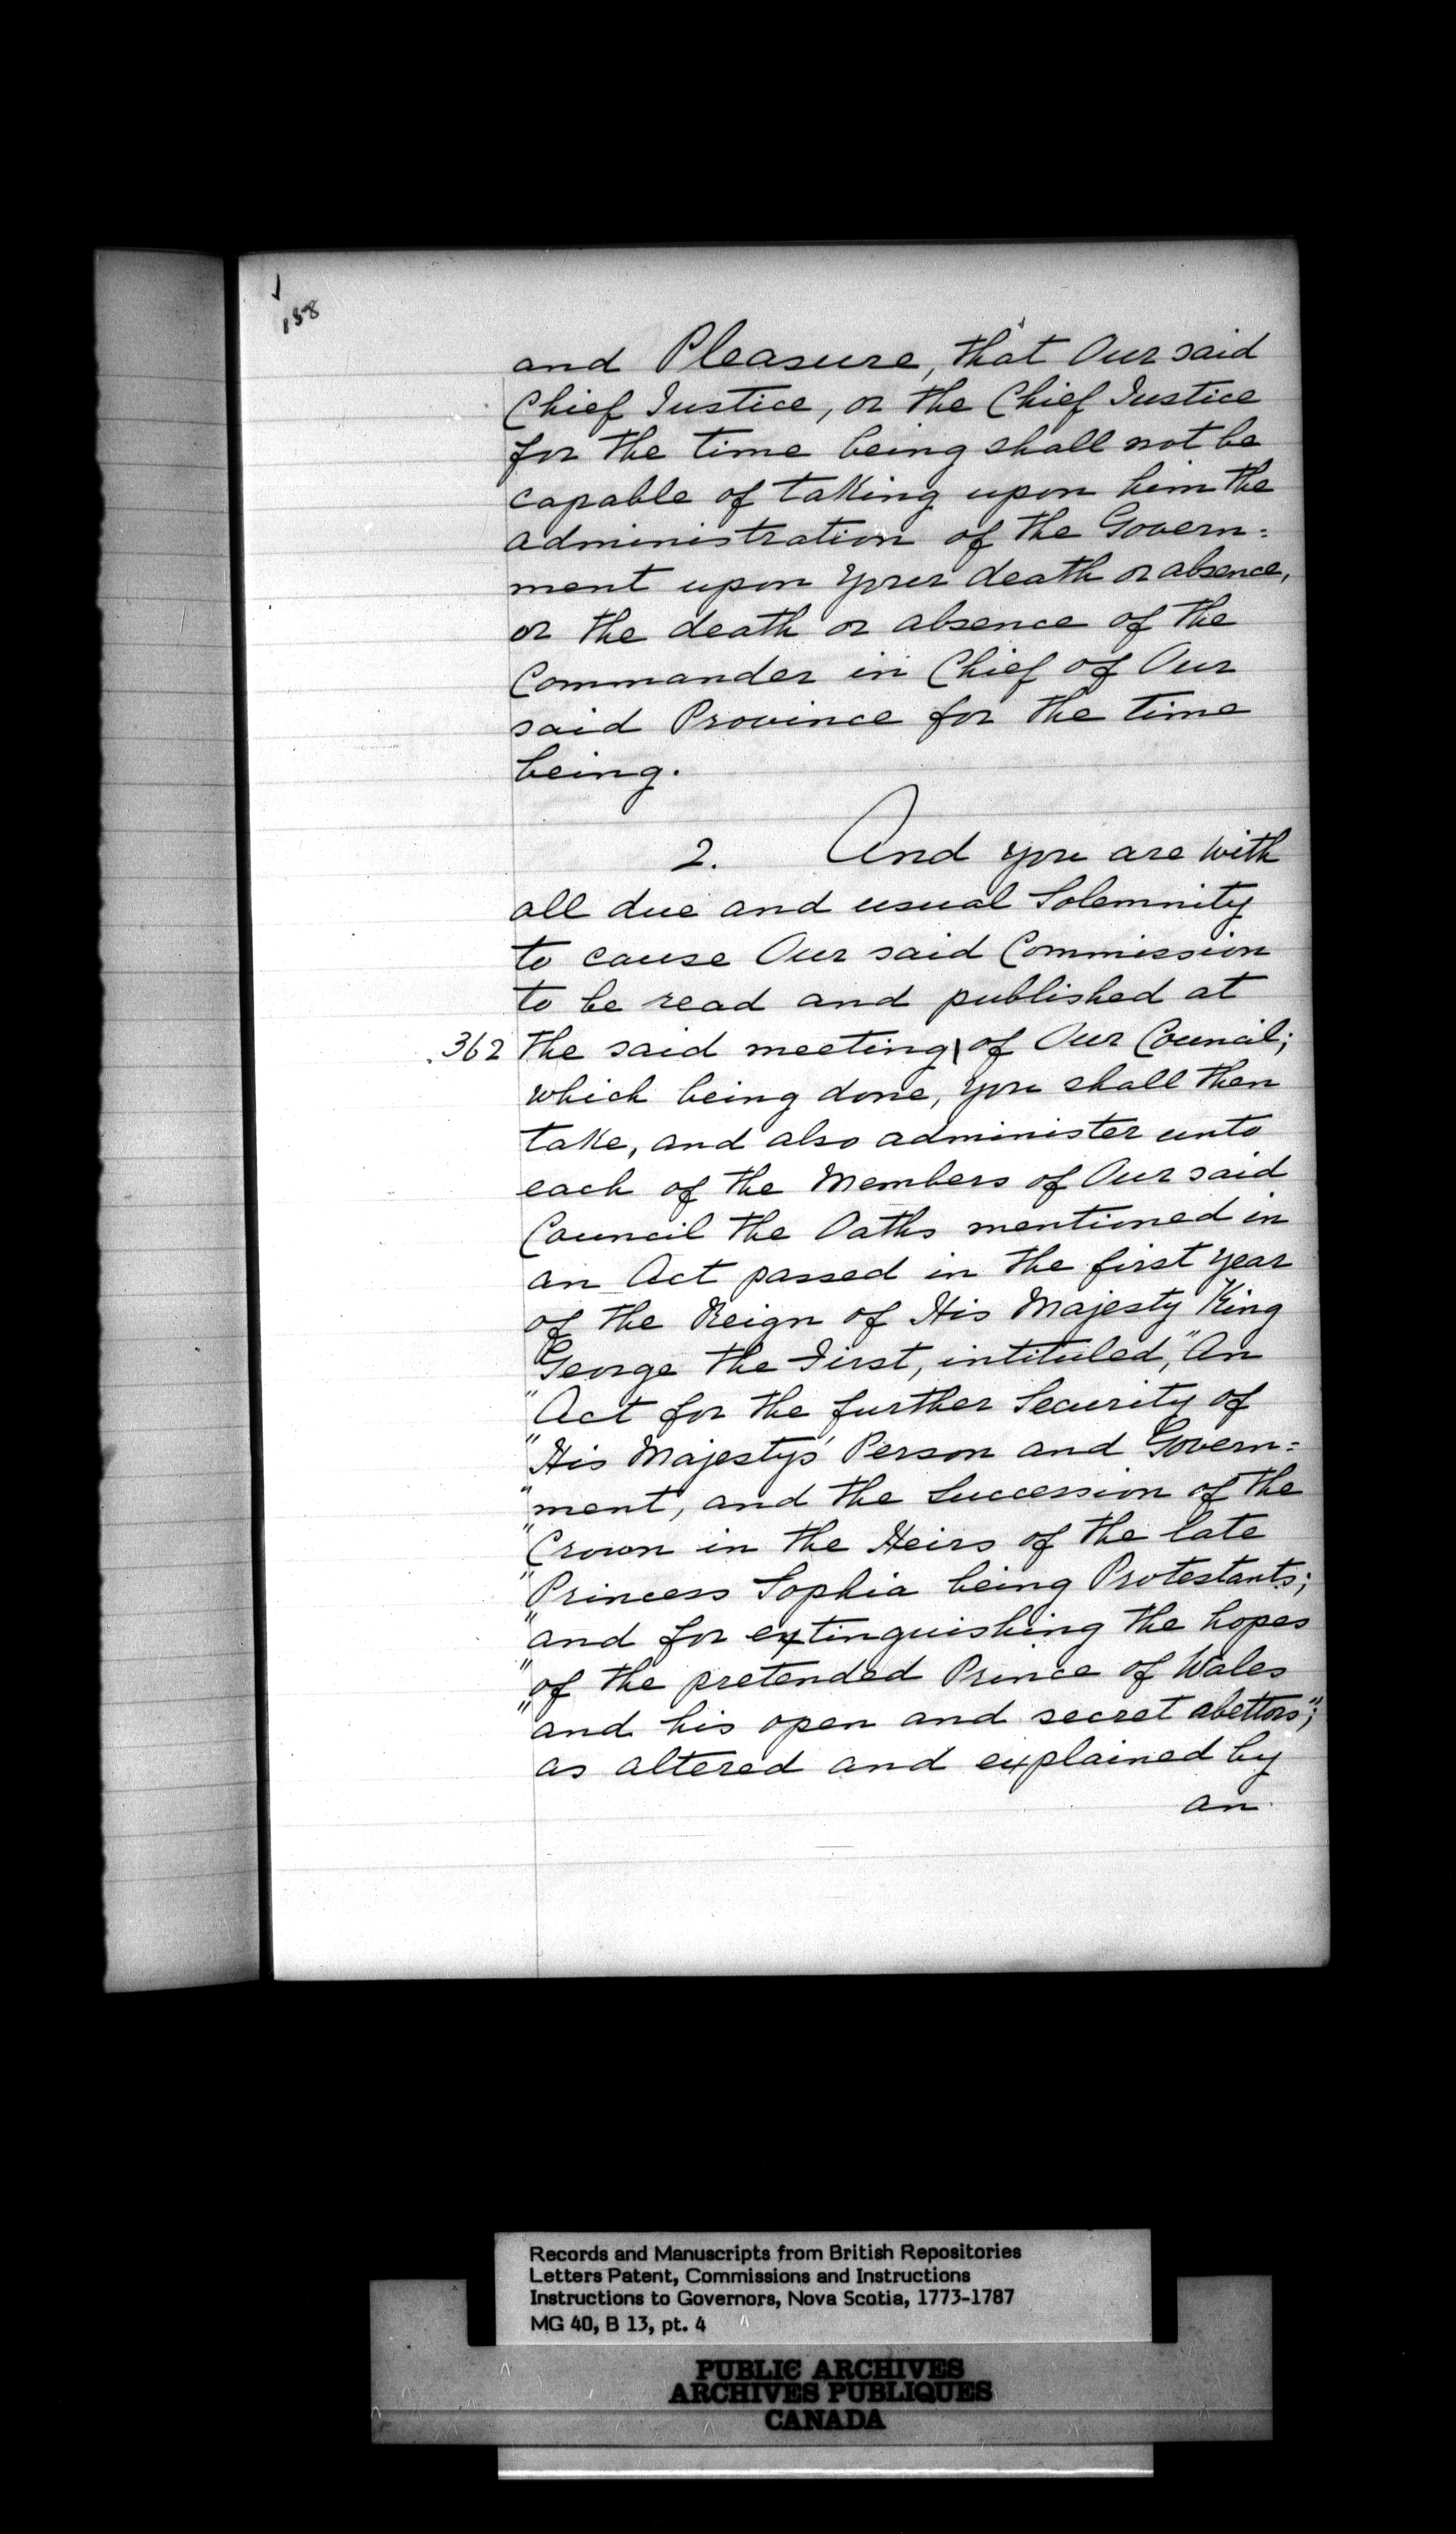 158
and Pleasure, that Our said
Chief Justice, or the Chief Justice
for the time being shall not be
capable of taking upon him the
administration of the Govern=
ment upon your death or absence,
or the death or absence of the
Commander in Chief of Our
said Province for the time
being.
2. And you are with
all due and usual Solemnity
to cause Our said Commission
to be read and published at
362 the said meeting\ of Our Council;
which being done, you shall then
take, and also administer unto
each of the Members of Our said
Council the Oaths mentioned in
an Act passed in the first year
of the Reign of His Majesty King
George the First, intituled, "An
"Act for the further Security of
"His Majesty's Person and Govern=
"ment, and the Succession of the
"Crown in the Heirs of the late
"Princess Sophia being Protestants;
"and for extinguishing the hopes
"of the pretended Prince of Wales
"and his open and secret abettors";
as altered and explained by
an
Records and Manuscripts from British Repositories
Letters Patent, Commissions and Instructions
Instructions to Governors, Nova Scotia, 1773-1787
MG 40, B 13, pt. 4
PUBLIC ARCHIVES
ARCHIVES PUBLIQUES
CANADA